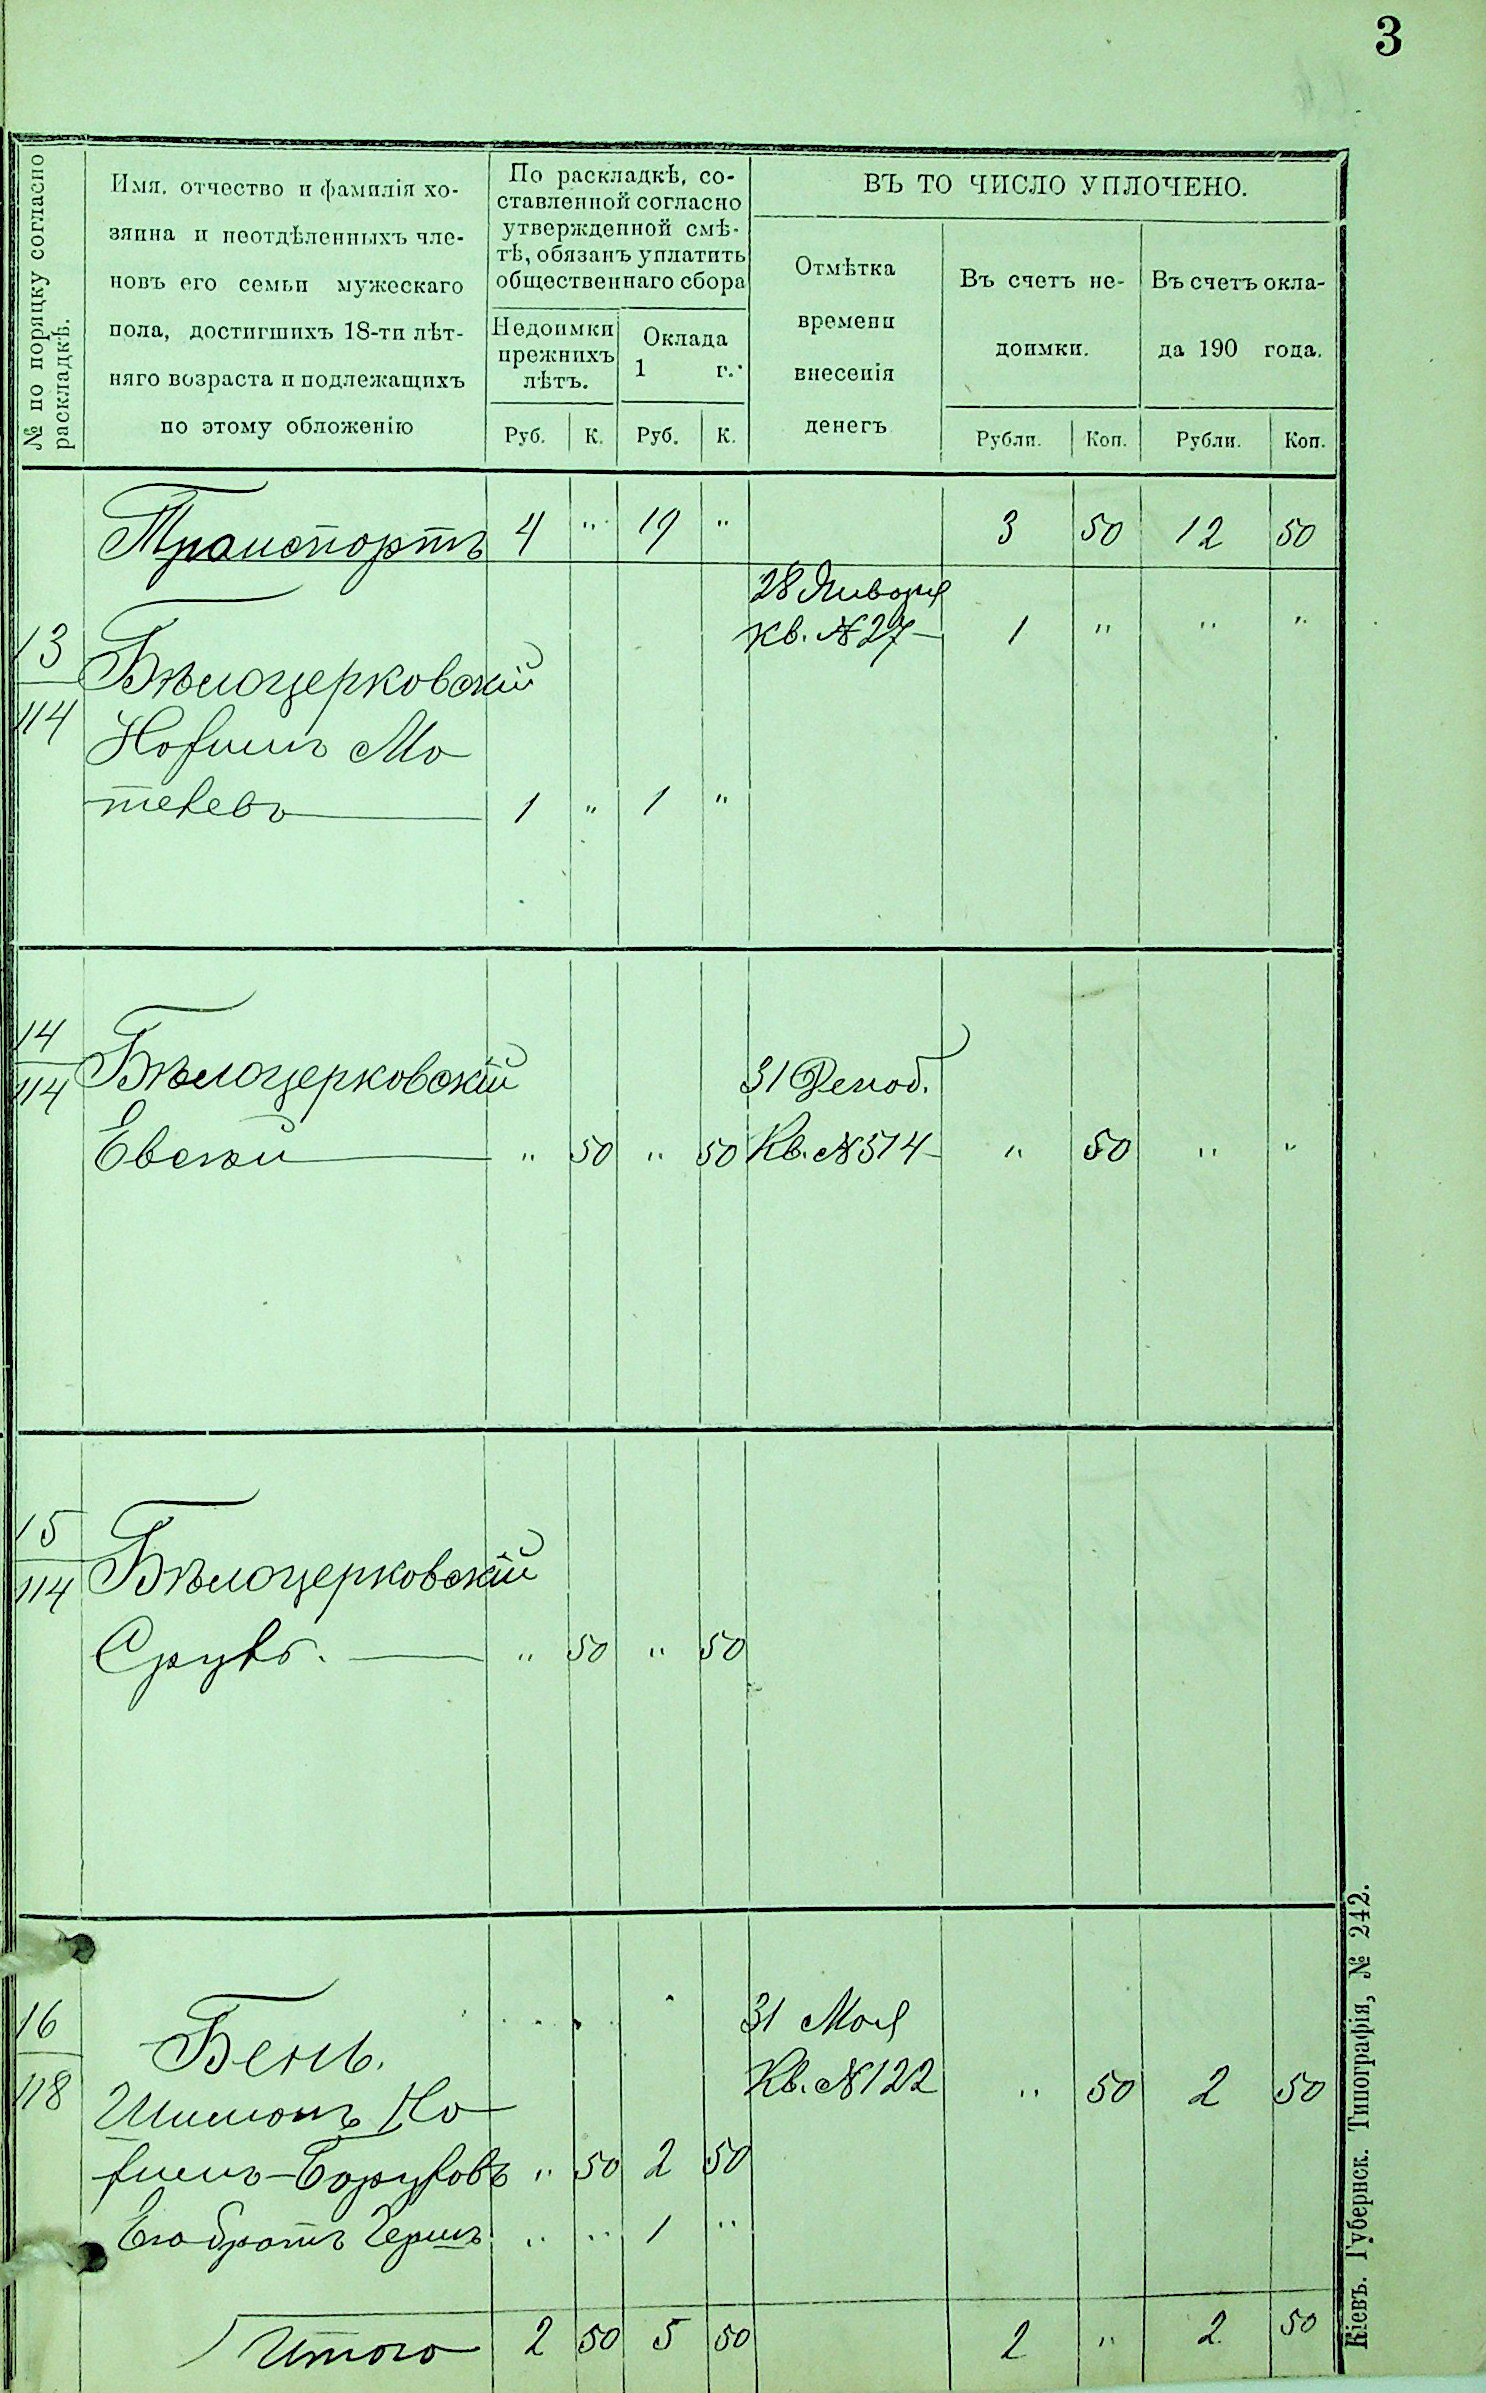 3
№ по поряцку согласно
раскладкѣ.
Имя, отчество и фамилія хо-
зяина и неотдѣленныхъ чле-
новъ его семьи мужескаго
пола, достигшихъ 18-ти лѣт-
няго возраста и подлежащихъ
по этому обложенію
По раскладкѣ, со-
ставленной согласно
утвержденной смѣ-
тѣ, обязанъ уплатить
общественнаго сбора
Недоимки
прежнихъ
лѣтъ.
Оклада
1 г.
Руб. К. Руб. К.
ВЪ ТО ЧИСЛО УПЛОЧЕНО.
Отмѣтка
времени
внесенія
денегъ
Въ счетъ не-
доимки.
Въ счетъ окла-
да 190 года.
Рубли. Коп. Рубли. Коп.
Транспортъ 4 " 19 " 3 50 12 50
28 Января
Кв. № 27 1 " " "
13
114
Бѣлоцерковскій
Мо
1 " 1 "
14
114
Бѣлоцерковскій 31 Декаб.
" 50 " 50 Кв. № 514 " 50 " "
15
114
Бѣлоцерковскій
Сруль. " 50 " 50
16
118
31 Мая
Бень.
Кв. № 122 " 50 2 50
Шимонъ
" 50 2 50
Его братъ Гершъ " " 1 "
Итого 2 50 5 50 2 " 2 50
Кіевъ. Губернск. Типографія, № 242.